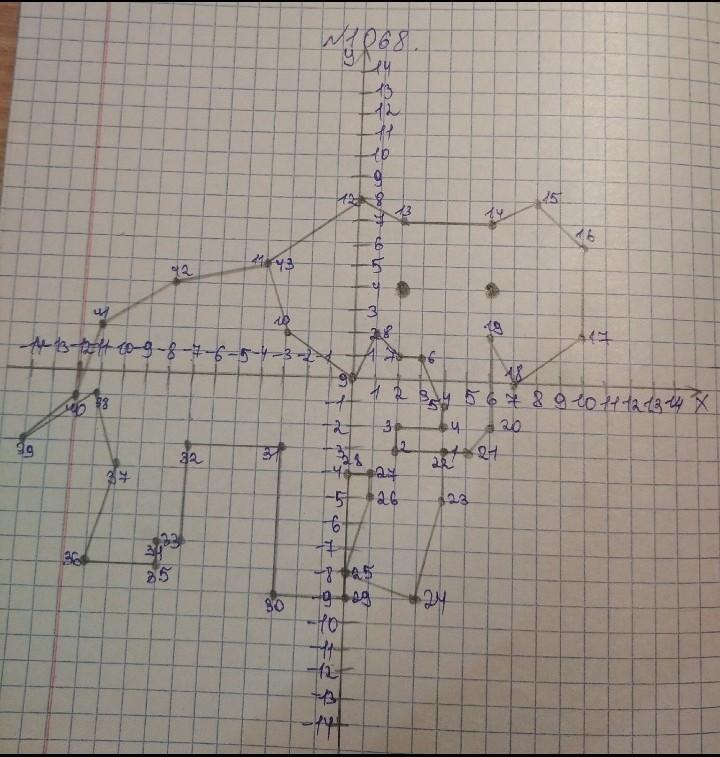 №1068.
У
14
13
12
11
10
9
12 8 13 14 15
7
6 16
5
11 43
42 4
3
41 10 2 8 19 17
-14 -13 -12 -11 -10 -9 -8 -7 -6 -5 -4 -3 -2 -1 1 7 6
9 1 2 3 4 5 6 7 8 9 10 11 12 13 14 X
18
40 38 -1 5
39 -2 3 4 20
32 31 -3 2 22 1 21
28
37 -4 27
-5 26 23
-6
34 33 -7
36 35 -8 25
30 -9 29 24
-10
-11
-12
-13
-14